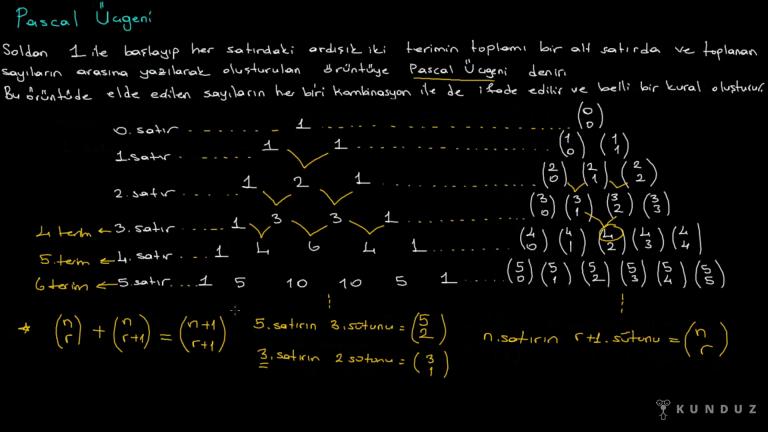 Pascal Üçgeni
Soldan 1 ile başlayıp her satırdaki ardışık iki terimin toplamı bir alt satırda ve toplanan
sayıların arasına yazılarak oluşturulan örüntüye Pascal Üçgeni denir.
Bu örüntüde elde edilen sayıların her biri kombinasyon ile de ifade edilir ve belli bir kural oluşturur.
0. satır 1 (0 0)
1. satır 1 1 (1 0) (1 1)
2. satır 1 2 1 (2 0) (2 1) (2 2)
4 terim ← 3. satır 1 3 3 1 (3 0) (3 1) (3 2) (3 3)
5. terim ← 4. satır 1 4 6 4 1 (4 0) (4 1) (4 2) (4 3) (4 4)
6 terim ← 5. satır 1 5 10 10 5 1 (5 0) (5 1) (5 2) (5 3) (5 4) (5 5)
(n r) + (n r+1) = (n+1 r+1)
5. satırın 3. sütunu = (5 2)
3. satırın 2 sütunu = (3 1)
n. satırın r+1. sütunu = (n r)
KUNDUZ